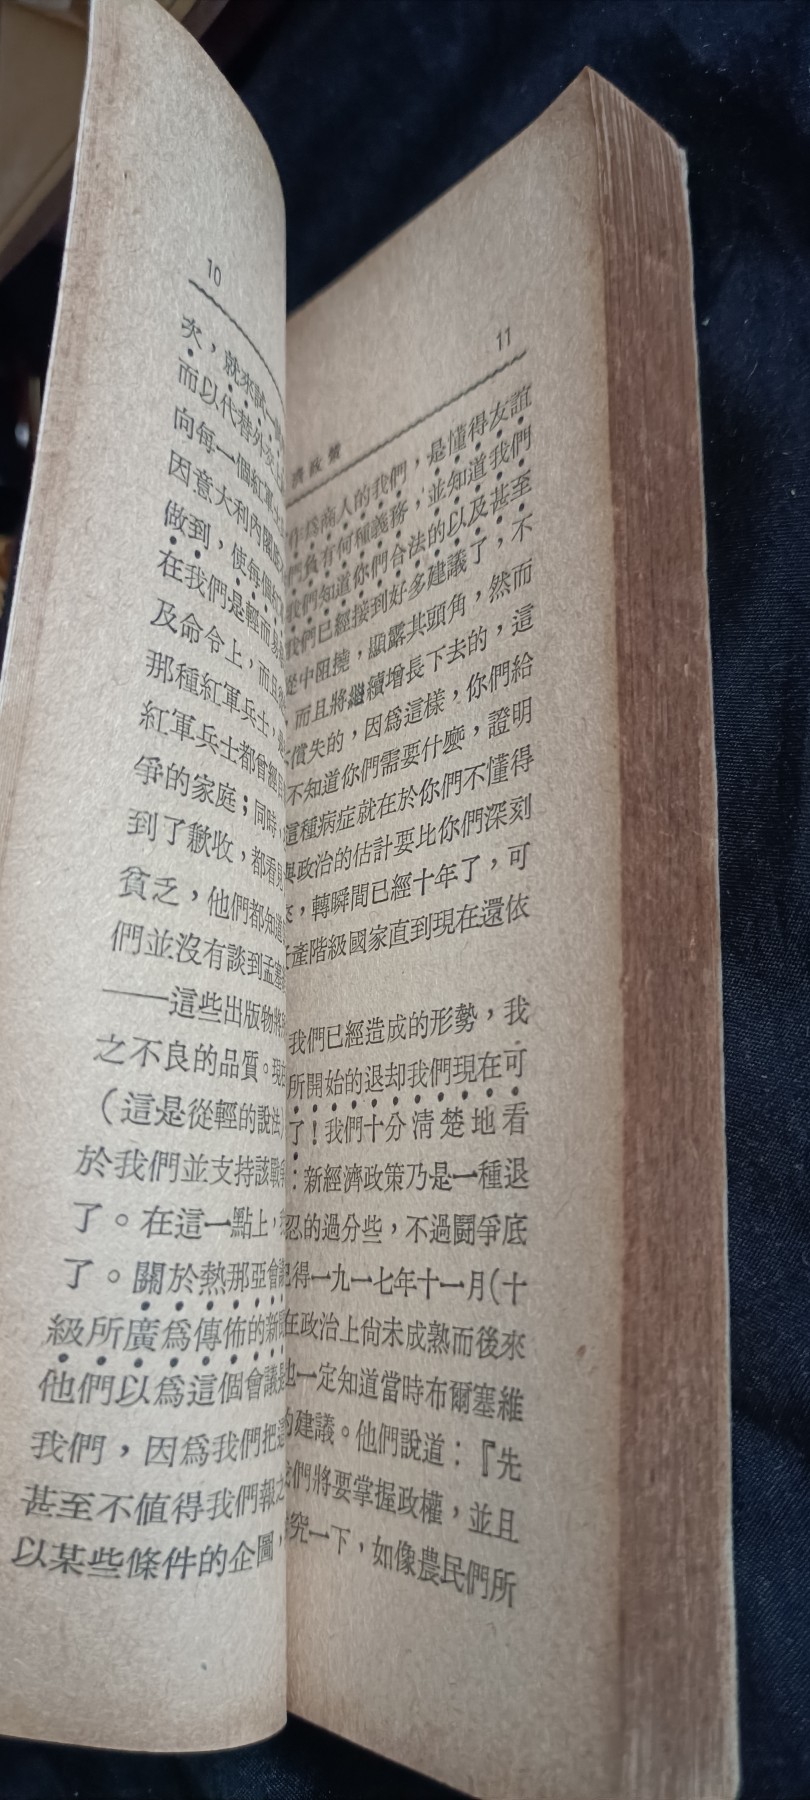 10
次，就來試一
而以代替外交
向每一個紅軍士
因意大利內閣
做到，使每個紅
在我們是輕而易
及命令上，而且
那種紅軍兵士，
紅軍兵士都曾經
爭的家庭；同時，
到了歉收，都看見
貧乏，他們都知道
們並沒有談到孟塞
——這些出版物將
之不良的品質。現在
（這是從輕的說法）
於我們並支持該戰爭
了。在這一點上，
了。關於熱那亞會議
級所廣爲傳佈的新聞
他們以爲這個會議是
我們，因爲我們把這
甚至不值得我們報之
以某些條件的企圖，
11
濟政策
作爲商人的我們，是懂得友誼
們負有何種義務，並知道我們
我們知道你們合法的以及甚至
我們已經接到好多建議了，不
從中阻撓，顯露其頭角，然而
，而且將繼續增長下去的，這
償失的，因爲這樣，你們給
不知道你們需要什麼，證明
這種病症就在於你們不懂得
與政治的估計要比你們深刻
，轉瞬間已經十年了，可
產階級國家直到現在還依
我們已經造成的形勢，我
所開始的退却我們現在可
了！我們十分清楚地看
：新經濟政策乃是一種退
忍的過分些，不過鬪爭底
記得一九一七年十一月(十
在政治上尙未成熟而後來
也一定知道當時布爾塞維
的建議。他們說道：『先
們將要掌握政權，並且
究一下，如像農民們所